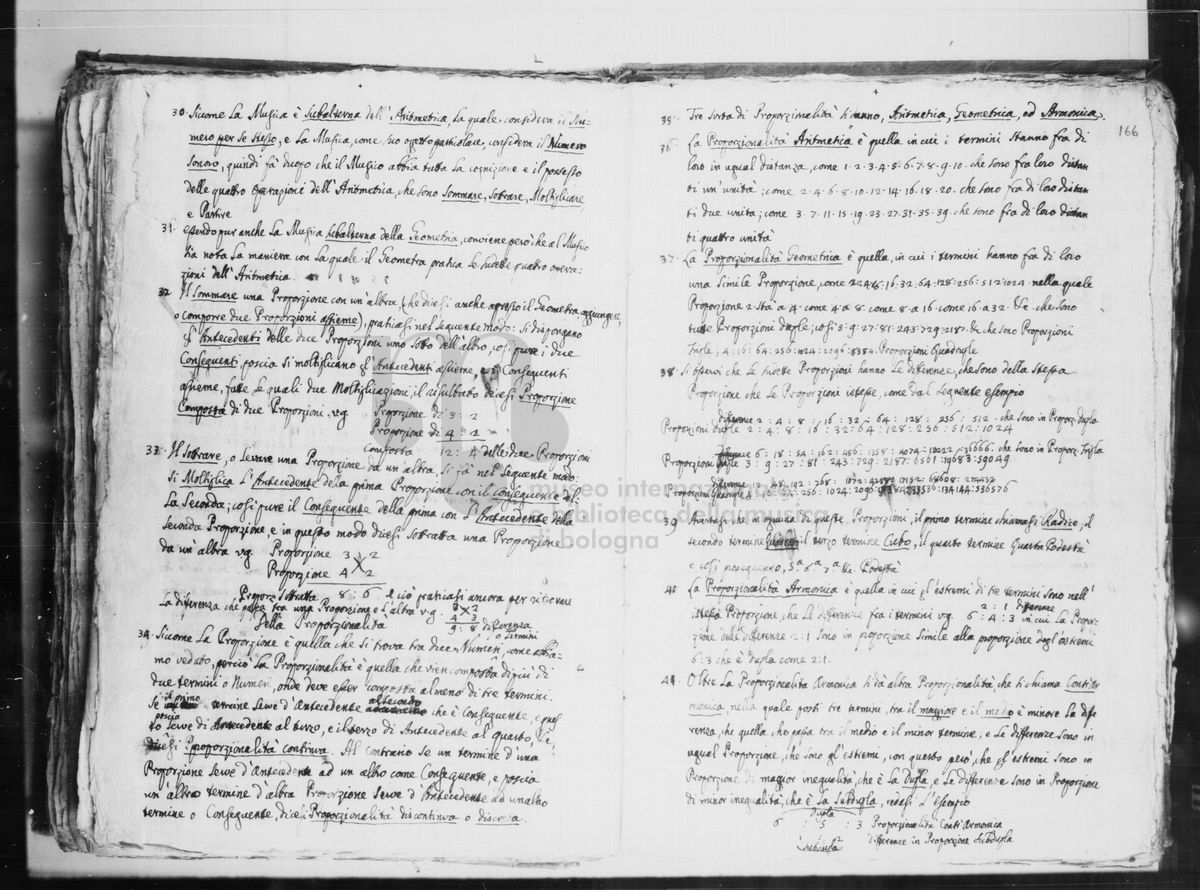 30. Sicome La Musica è Subalterna dell' Aritmetica, la quale considera il Nu-
mero per se stesso, e La Musica, come suo ogetto particolare, considera il Numero
Sonoro, quindi fà d'uopo che il Musico abbia tutta la cognizione e il possesso
delle quattro Operazioni dell' Aritmetica, che sono Sommare, Sottrare, Moltiplicare,
e Partire
31. essendo pur anche La Musica subalterna della Geometria, conviene però che al Musico
sia nota La maniera con la quale il Geometra pratica le sudette quattro opera-
zioni dell' Aritmetica.
32. Il Sommare una Proporzione con un'altra (che dicesi anche apresso il Geometra aggiungere,
o comporre due Proporzioni assieme), praticasi nel seguente modo: si dispongano
gl' Antecedenti delle due Proporzioni uno sotto dell'altro, così pure i due
Conseguenti, poscia si moltiplicano gl' Antecedenti assieme, e i Conseguenti
assieme, fatte le quali due Moltiplicazioni, il risultato dicesi Proporzione
Composta di due Proporzioni. v.g. Proporzione di 3 : 2
Proporzione di 4 : 2
Composta 12 : 4 delle due Proporzioni
33. Il Sottrare, o levare una Proporzione da un'altra, si fà nel seguente modo
Si Moltiplica L'Antecedente della prima Proporzione con il conseguente del
La Seconda; così pure il Conseguente della prima con L'Antecedente della
seconda Proporzione, e in questo modo dicesi sottratta una Proporzione
da un'altra v.g. Proporzione 3 2
Proporzione 4 2
Proporz. sottratta 8 : 6 e ciò praticasi ancora per ritrovare
La differenza che passa tra una Proporzione e L'altra v.g. 3 2
4 3
9 : 8 differenza
o Termini
Della Proporzionalità
34. Sicome La Proporzione è quella che si trova tra due Numeri, come abbia-
mo veduto, perciò La Proporzionalità è quella che vien composta di più di
due termini o Numeri, onde deve esser composta almeno di tre termini.
Se il primo termine serve d'Antecedente al secondo che è Conseguente, e que
poscia
to serve di Antecedente al terzo, e il terzo di Antecedente al quarto,
dicesi Proporzionalità continua. Al contrario se un termine d'una
Proporzione serve d'Antecedente ad un altro come Conseguente, e poscia
un'altro termine d'altra Proporzione serve d'Antecedente ad un altro
termine o Conseguente, dicesi Proporzionalità discontinua o discreta.
166
35. Tre sorta di Proporzionalità si danno, Aritmetica, Geometrica, ed Armonica
36. La Proporzionalità Aritmetica è quella in cui i termini stanno frà di
loro in ugual distanza, come 1. 2. 3. 4. 5. 6. 7. 8. 9. 10. che sono frà loro distan
ti un'unità; come 2. 4. 6. 8. 10. 12. 14. 16. 18. 20. che sono frà di loro distan
ti due unità; come 3. 7. 11. 15. 19. 23. 27. 31. 35. 39. che sono frà di loro distan
ti quattro unità
37. La Proporzionalità Geometrica è quella, in cui i termini hanno frà di loro
una Simile Proporzione, come 2:4:8:16:32:64:128:256:512:1024 nella quale
Proporzione 2 stà a 4 come 4 a 8. come 8 a 16. come 16 a 32. &c. che sono
tutte Proporzioni duple; così 3:9:27:81:243:729:2187. &c che sono Proporzioni
Triple; 4:16:64:256:1024:4096:16384. Proporzioni Quadruple
38. Si osservi che le sudette Proporzioni hanno Le differenze, che sono della stessa
Proporzione che Le Proporzioni istesse, come dal seguente esempio
differenze 2 : 4 : 8 : 16 : 32 : 64 : 128 : 256 : 512 . che sono in Proporz. dupla
Proporzioni duple 2 : 4 : 8 : 16 : 32 : 64 : 128 : 256 : 512 : 1024
differenze 6 : 18 : 54 : 162 : 486 : 1358 : 4074 : 12222 : 36666. che sono in Proporz. Tripla
Proporzioni triple 3 : 9 : 27 : 81 : 243 : 729 : 2187 : 6561 : 19683 : 59049
differenze
Proporzioni Quadruple
39. Avertasi che in ognuna di queste Proporzioni, il primo termine chiamasi Radice, il
secondo termine Quadrato, il terzo termine Cubo, il quarto termine Quarta Podestà
e così proseguendo, 5ª 6ª 7ª &c. Podestà
40. La Proporzionalità Armonica è quella in cui gl'estremi di tre termini sono nell'
istessa Proporzione, che Le differenze frà i termini v.g. 6 : 4 : 3 in cui la Propor-
2 : 1 differenze
zione delle differenze 2:1 sono in proporzione simile alla proporzione degl'estremi
6:3 che è dupla come 2:1.
41. Oltre La Proporzionalità Armonica si dà altra Proporzionalità, che si chiama Contr'Ar
monica, nella quale posti tre termini, trà il maggiore e il medio è minore La diffe
renza, che quella, che passa trà il medio e il minor termine, e Le differenze sono in
ugual Proporzione, che sono gl'estremi, con questo però, che gl'estremi sono in
Proporzione di maggior inequalità, che è La Dupla, e Le differenze sono in Proporzione
di minor inequalità, che è La Subdupla, vedasi L'esempio
Dupla
6 : 5 : 3 Proporzionalità Contr'Armonica
Subdupla differenze in Proporzione Subdupla
museo internazionale
e biblioteca della musica
di bologna